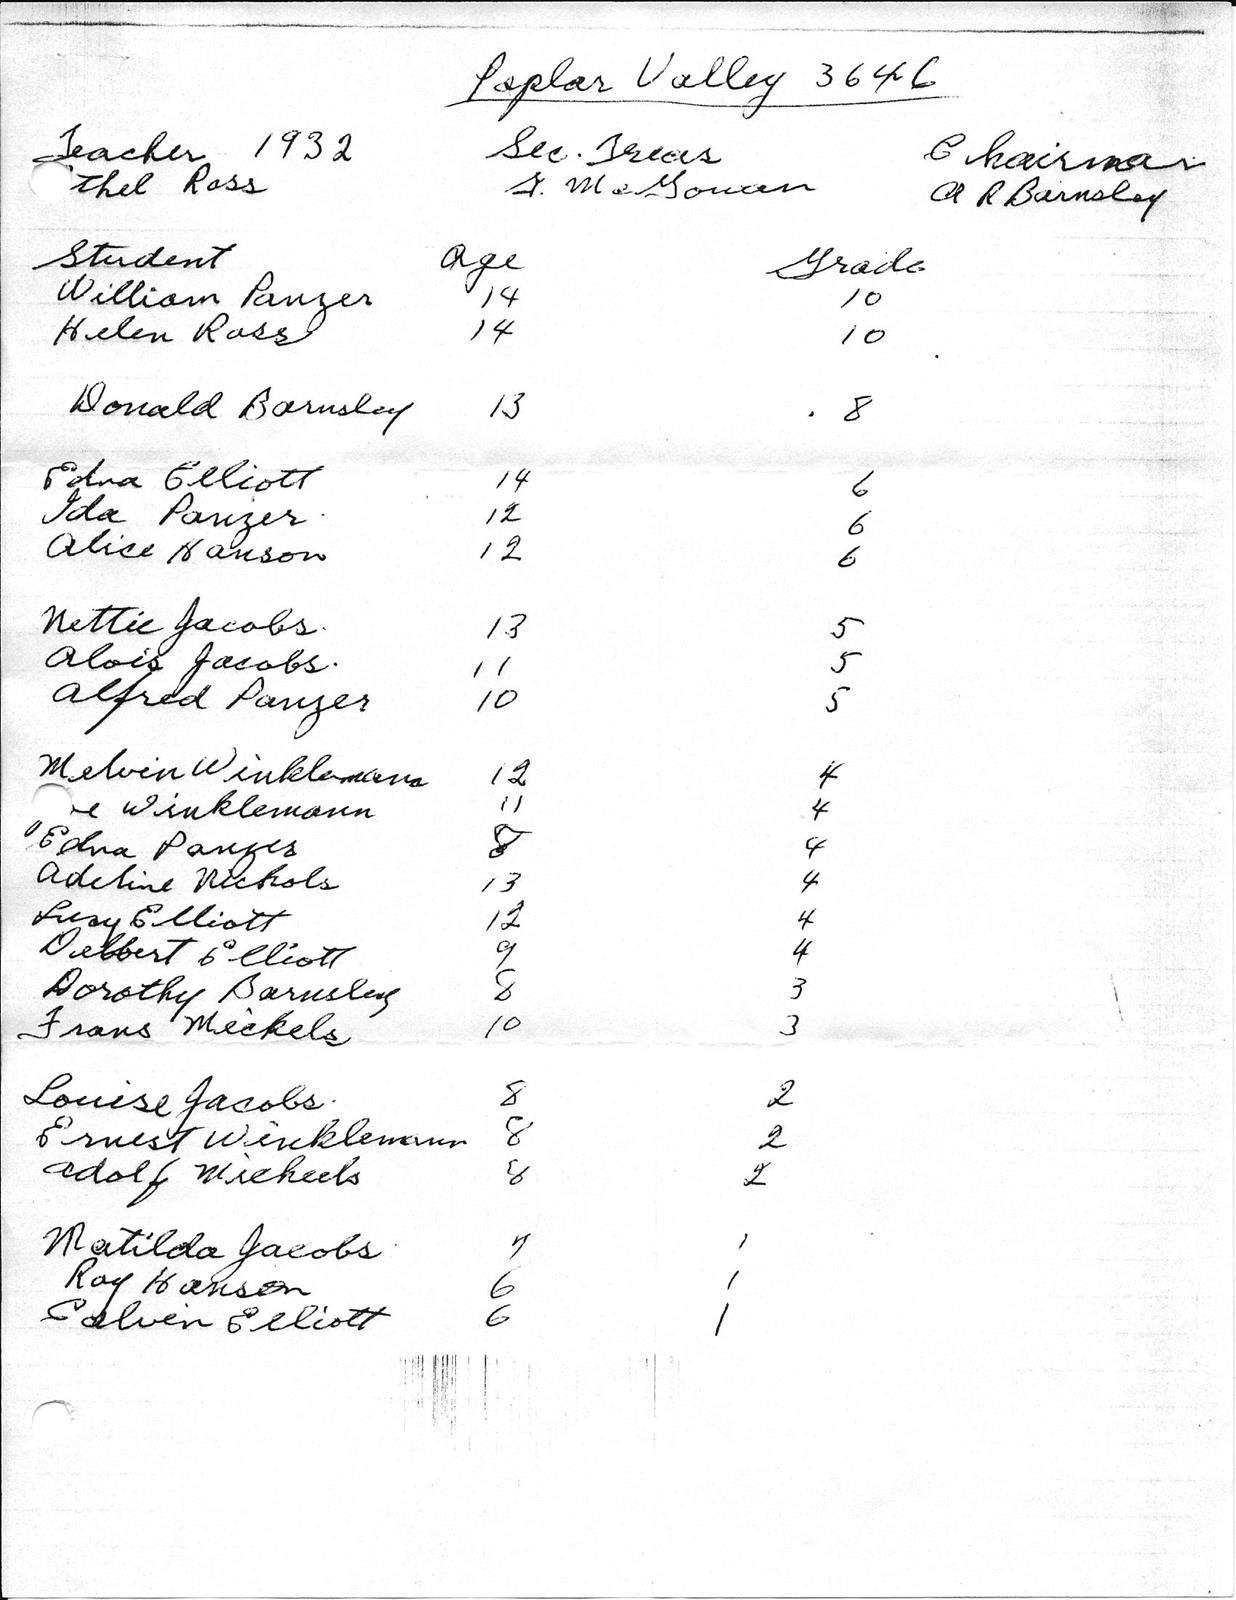 Poplar Valley 3646
Teacher 1932 Sec. Treas Chairman
thel Ross McGowan A R Barnsley
Student Age Grade
William Panzer 14 10
Helen Ross 14 10
Donald Barnsley 13 8
Edna Elliott 14 6
Ida Panzer 12 6
Alice Hanson 12 6
Nettie Jacobs. 13 5
Alois Jacobs. 11 5
Alfred Panzer 10 5
Melvin Winklemann 12 4
e Winklemann 11 4
Edna Panzer 8 4
Adeline Nickols 13 4
Lucy Elliott 12 4
Delbert Elliott 9 4
Dorothy Barnsley 8 3
Frans Mickels 10 3
Louise Jacobs. 8 2
Ernest Winklemann 8 2
Adolf Micheels 8 2
Matilda Jacobs 7 1
Roy Hanson 6 1
Calvin Elliott 6 1